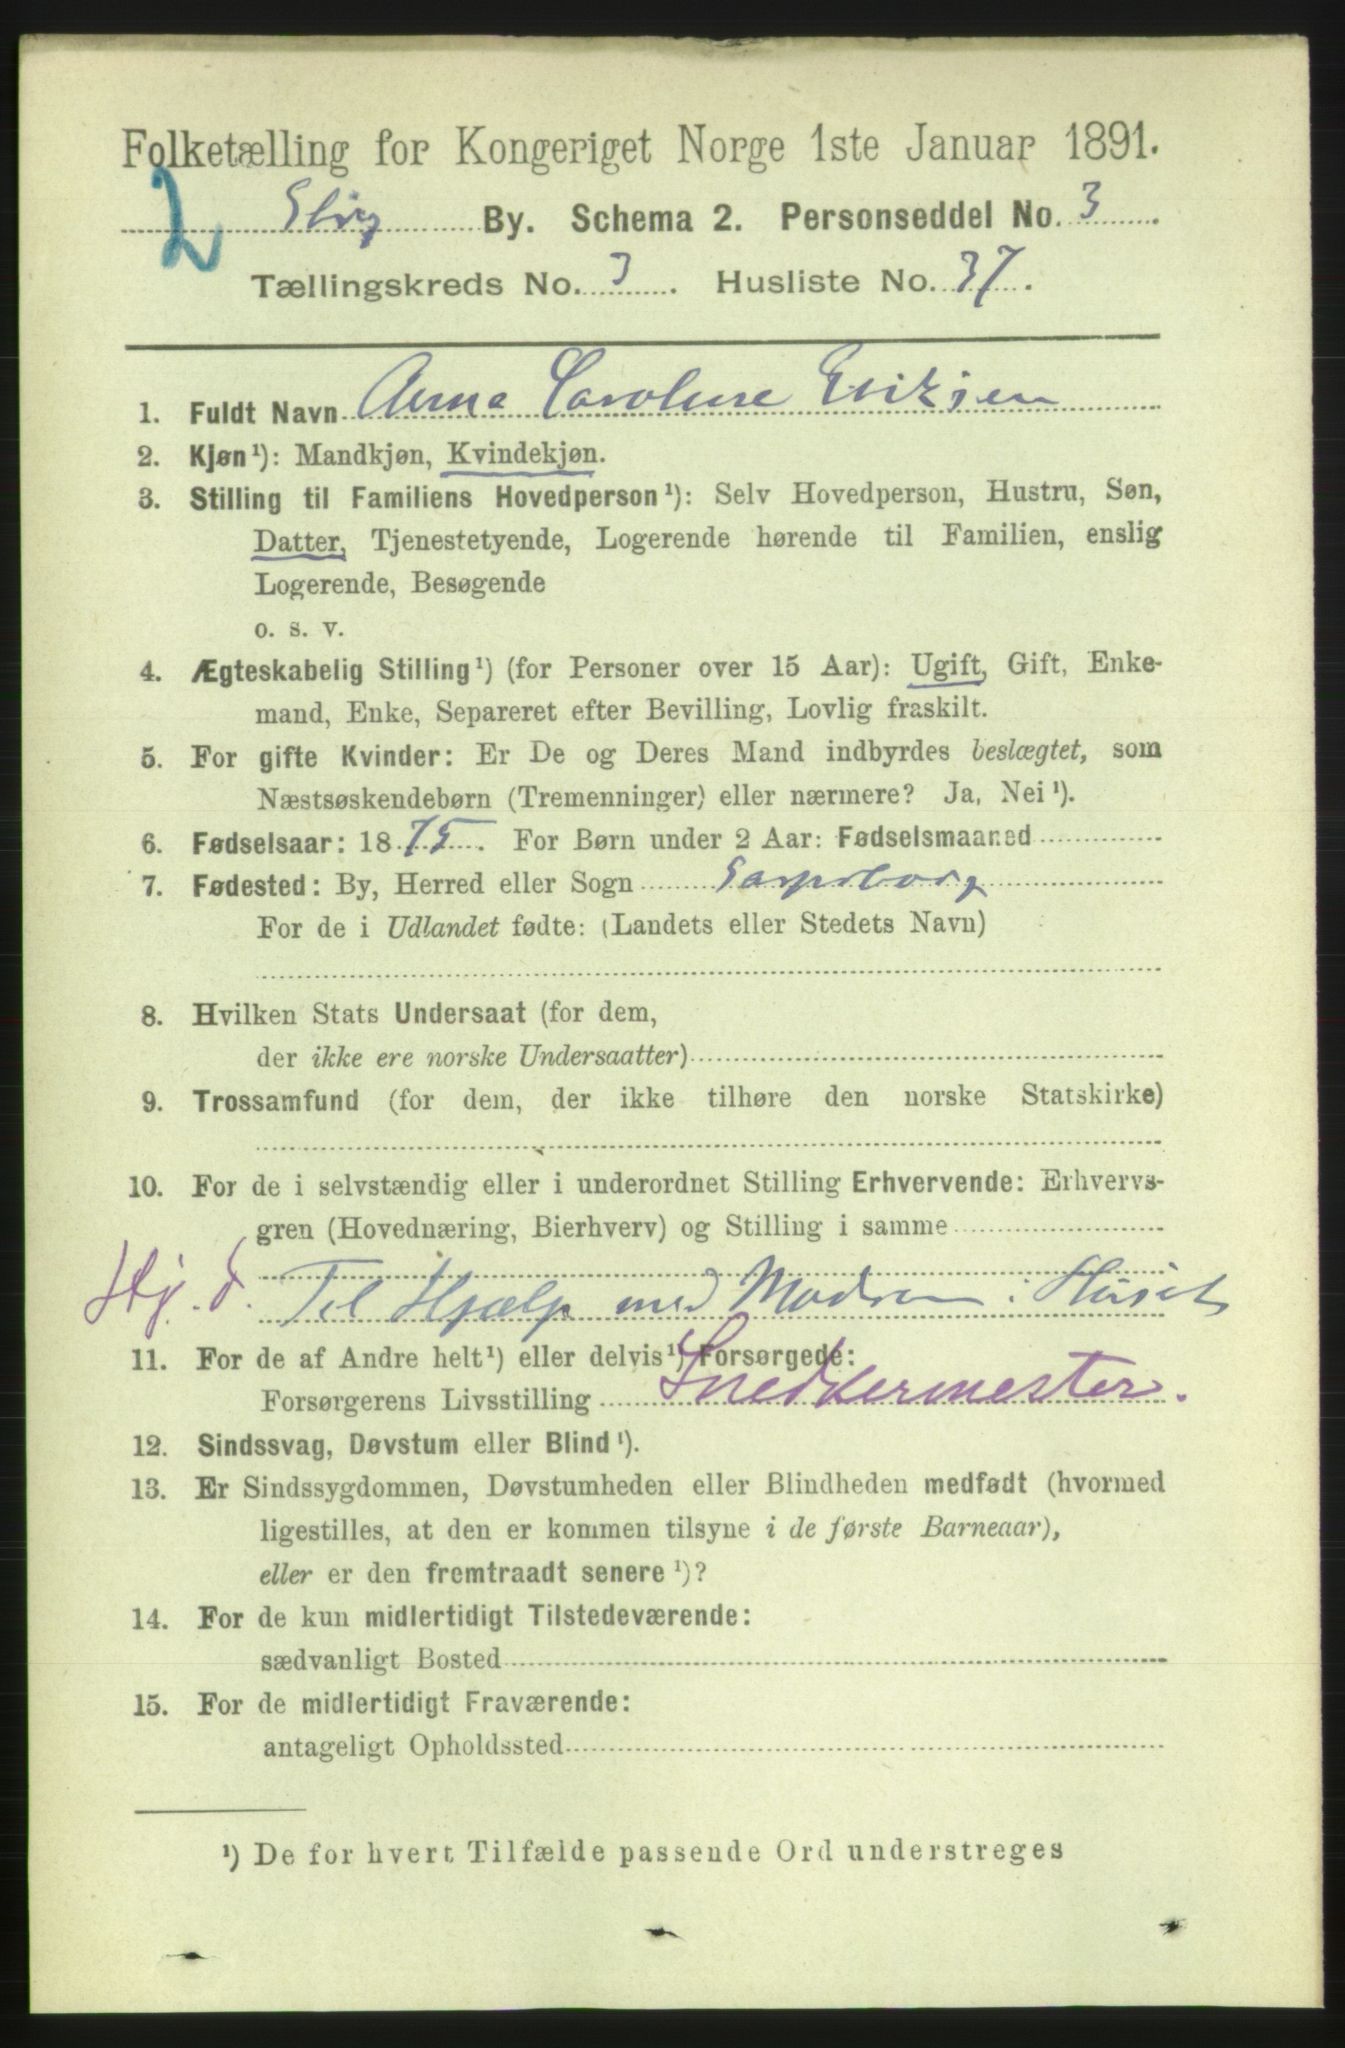 Folketælling for Kongeriget Norge 1ste Januar 1891.
2 Sbrg By. Schema 2. Personseddel No. 3.
Tællingskreds No. 3. Husliste No. 37.
1. Fuldt Navn Anna Caroline Eriksen
2. Kjøn¹): Mandkjøn, Kvindekjøn.
3. Stilling til Familiens Hovedperson¹): Selv Hovedperson, Hustru, Søn,
Datter, Tjenestetyende, Logerende hørende til Familien, enslig
Logerende, Besøgende
o. s. v.
4. Ægteskabelig Stilling¹) (for Personer over 15 Aar): Ugift, Gift, Enke-
mand, Enke, Separeret efter Bevilling, Lovlig fraskilt.
5. For gifte Kvinder: Er De og Deres Mand indbyrdes beslægtet, som
Næstsøskendebørn (Tremenninger) eller nærmere? Ja, Nei¹).
6. Fødselsaar: 1875. For Børn under 2 Aar: Fødselsmaaned
7. Fødested: By, Herred eller Sogn Sarpsborg
For de i Udlandet fødte: (Landets eller Stedets Navn)
8. Hvilken Stats Undersaat (for dem,
der ikke ere norske Undersaatter)
9. Trossamfund (for dem, der ikke tilhøre den norske Statskirke)
10. For de i selvstændig eller i underordnet Stilling Erhvervende: Erhvervs-
gren (Hovednæring, Bierhverv) og Stilling i samme
Hj. d. Til Hjælp med Modren i Huset
11. For de af Andre helt¹) eller delvis¹) Forsørgede:
Forsørgerens Livsstilling Snedkermester.
12. Sindssvag, Døvstum eller Blind¹).
13. Er Sindssygdommen, Døvstumheden eller Blindheden medfødt (hvormed
ligestilles, at den er kommen tilsyne i de første Barneaar),
eller er den fremtraadt senere¹)?
14. For de kun midlertidigt Tilstedeværende:
sædvanligt Bosted
15. For de midlertidigt Fraværende:
antageligt Opholdssted
¹) De for hvert Tilfælde passende Ord understreges